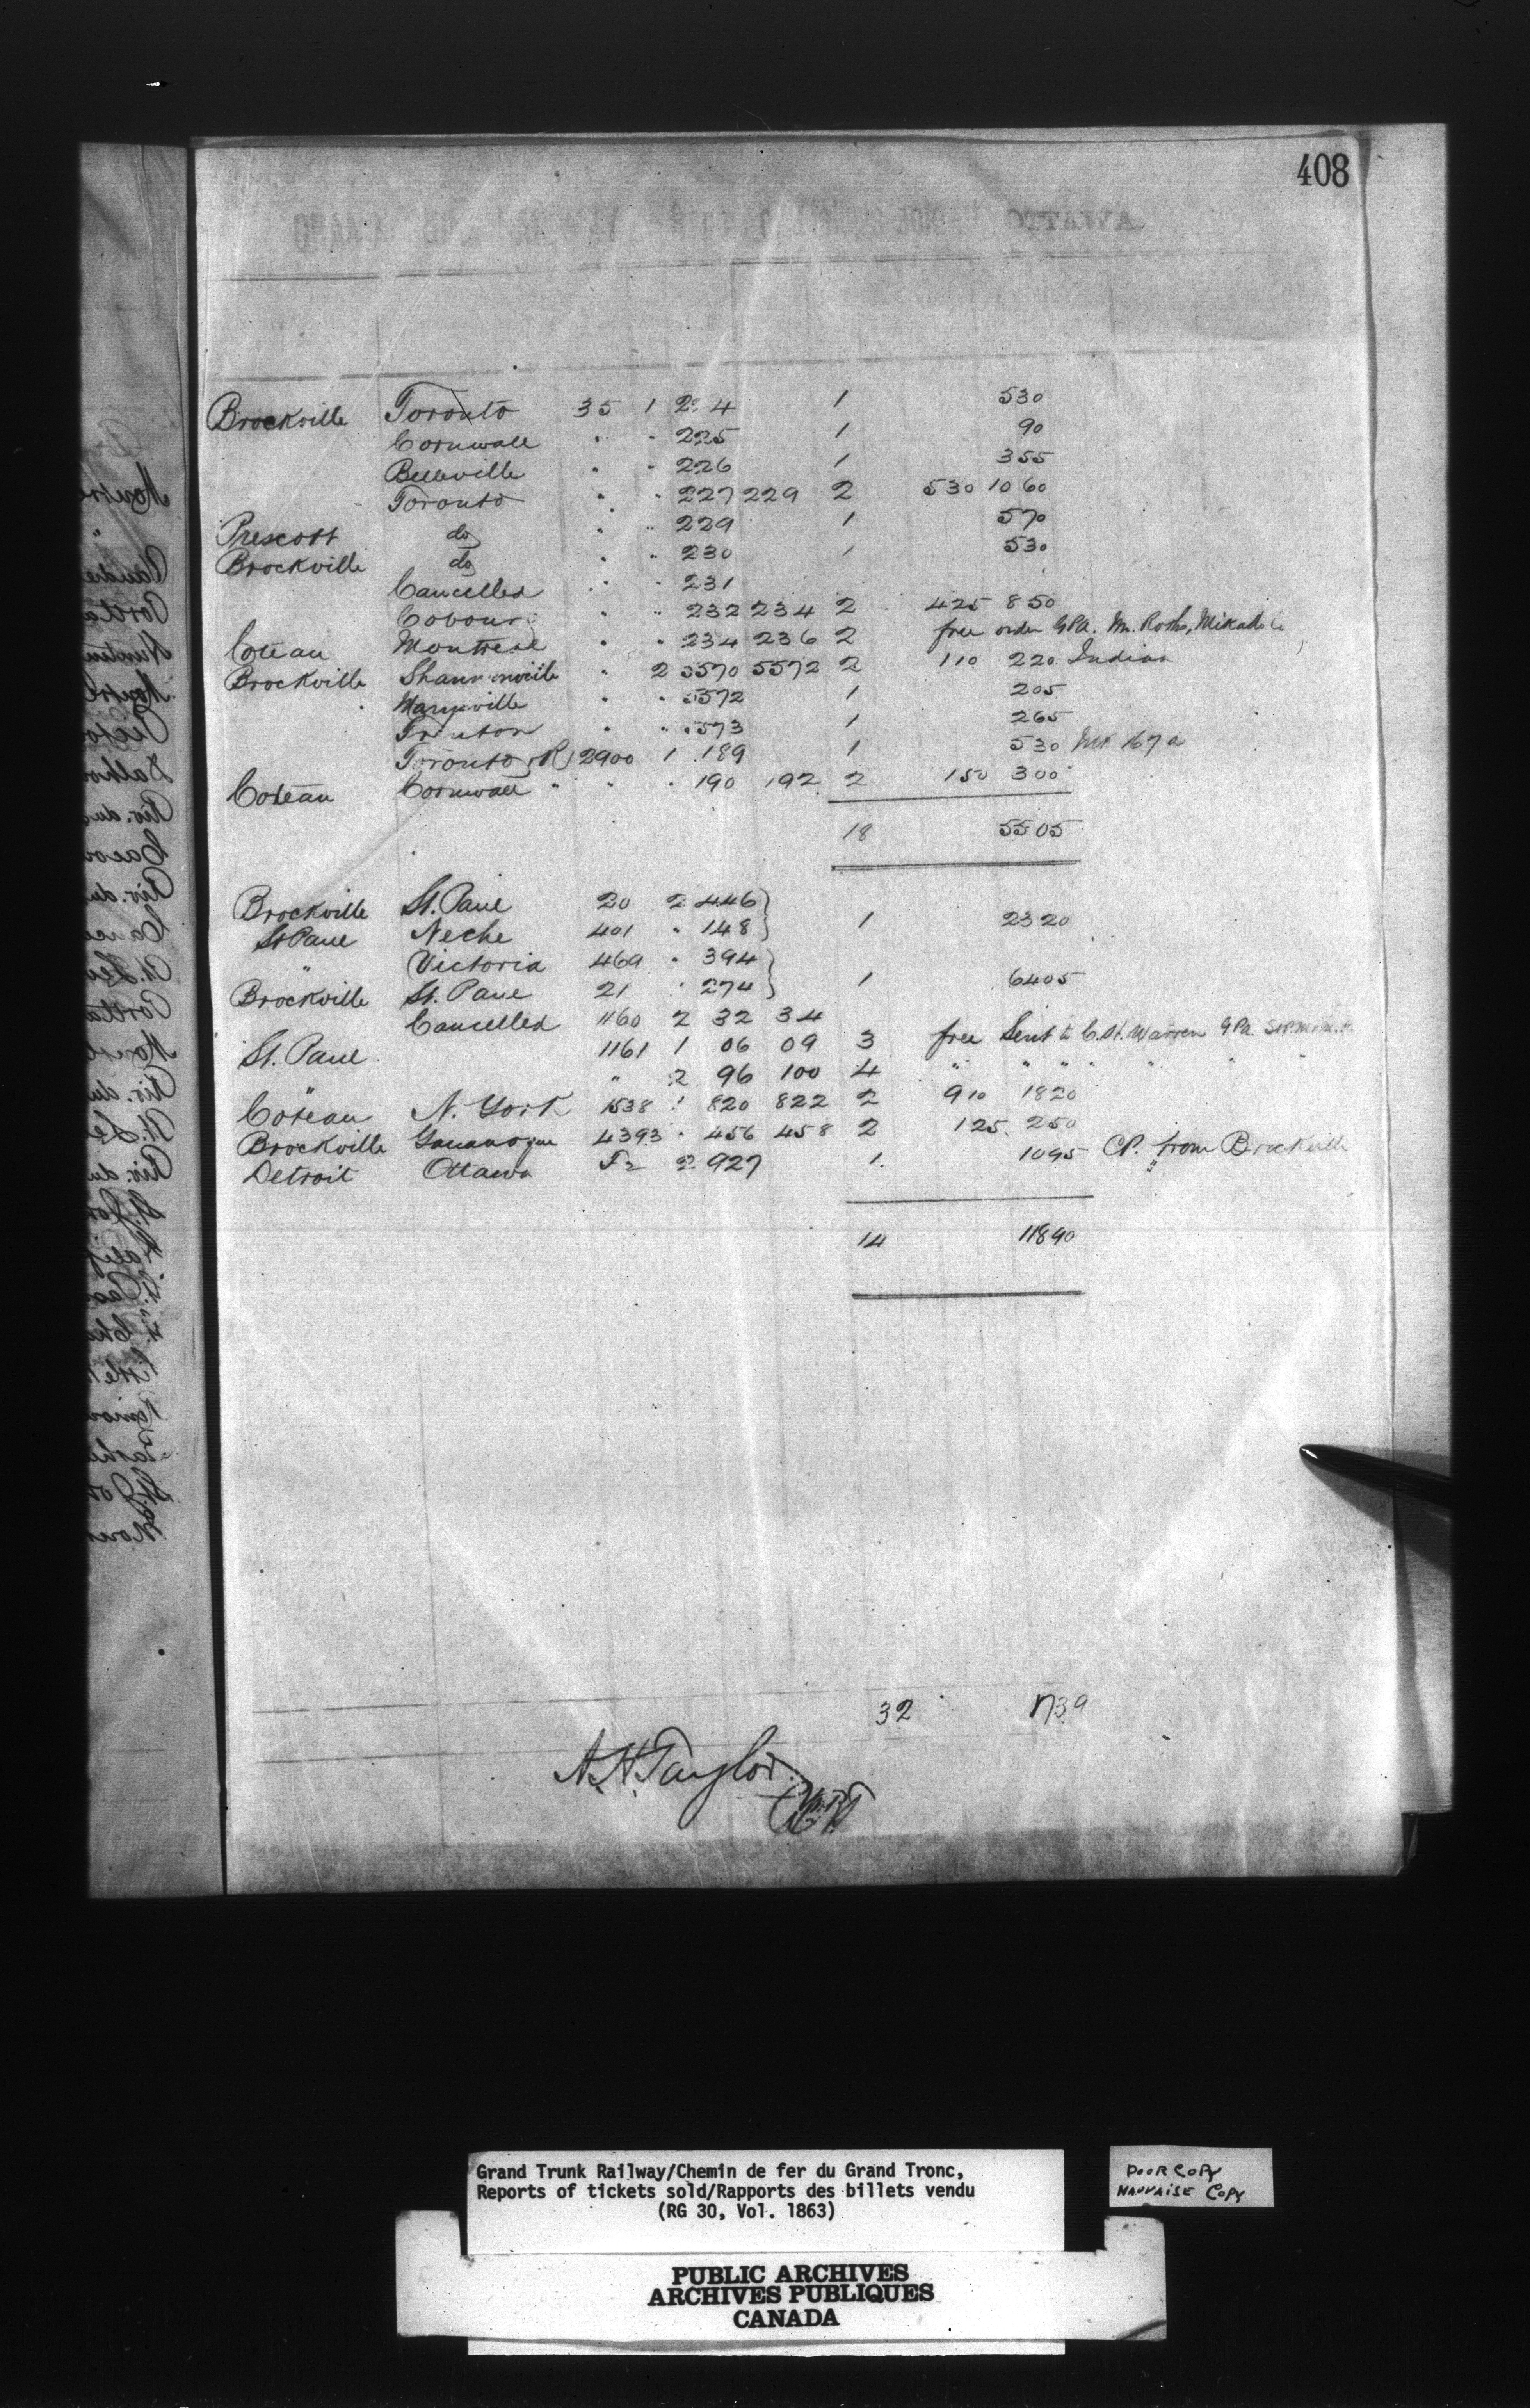 408
Brockville Toronto 35 1 224 1 530
Cornwall " " 225 1 90
Belleville " " 226 1 355
Toronto " " 227 229 2 530 1060
Prescott do " " 229 1 570
Brockville do " " 230 1 530
Cancelled " " 231
Cobourg " " 232 234 2 425 850
Coteau Montreal " " 234 236 2 free order GPA. Mr. Rolls, Mikado Co
Brockville Shannonville " 2 5570 5572 2 110 220 Indian
Marysville " " 5572 1 205
Trenton " " 5573 1 265
Toronto (R) 2900 1 189 1 530 167 a
Coteau Cornwall " " " 190 192 2 150 300
18 5505
Brockville St. Paul 20 2 446 } 1 2320
St Paul Neche 401 " 148 }
" Victoria 469 " 394 } 1 6405
Brockville St. Paul 21 " 274 }
Cancelled 1160 2 32 34
St. Paul 1161 1 06 09 3 free Sent to C.H. Warren GPA
" " 2 96 100 4 " " " " " "
Coteau N. York 1538 1 820 822 2 910 1820
Brockville Gananoque 4393 " 456 458 2 125 250
Detroit Ottawa 2 927 1 1095 CP. from Brockville
14 11890
32 1739
A. H. Taylor
Grand Trunk Railway/Chemin de fer du Grand Tronc,
Reports of tickets sold/Rapports des billets vendu
(RG 30, Vol. 1863)
POOR COPY
MAUVAISE COPY
PUBLIC ARCHIVES
ARCHIVES PUBLIQUES
CANADA